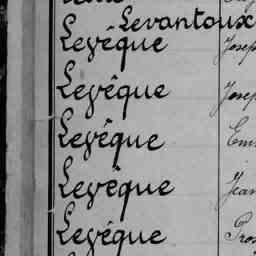 Levantoux
Levêque Josep
Levêque Josep
Levêque Em
Levêque Jean
Levêque Pros